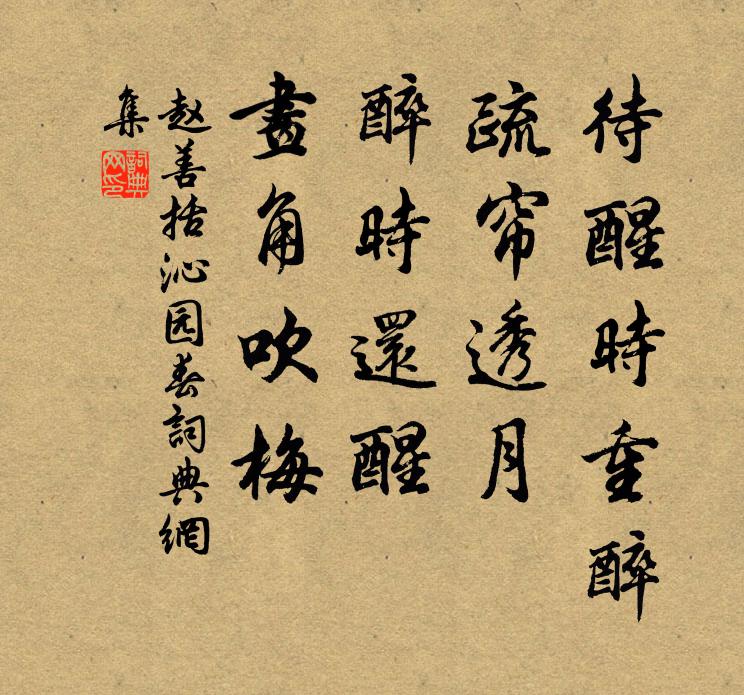 待醒時重醉
疏帘透月
醉時還醒
畫角吹梅
赵善括沁园春詞典網
集
詞典网印